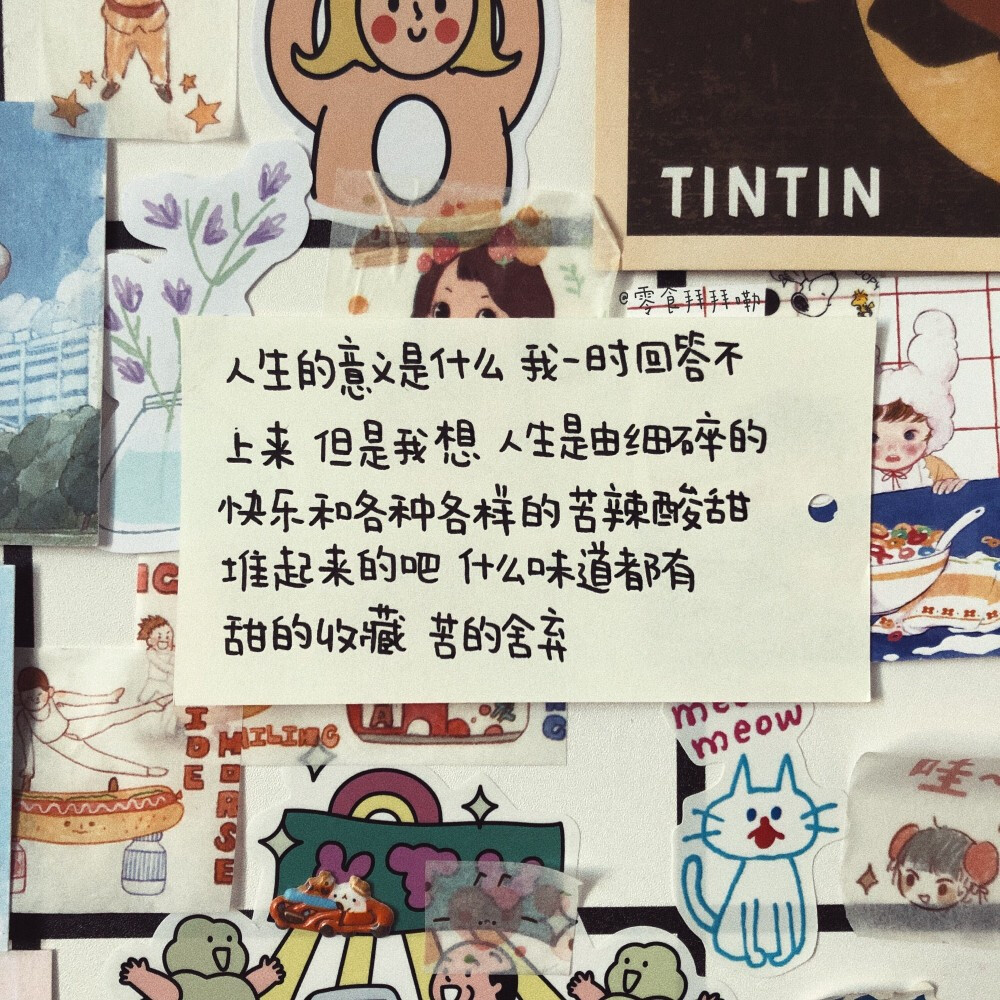 TINTIN
@零食拜拜嘞
人生的意义是什么 我一时回答不
上来 但是我想 人生是由细碎的
快乐和各种各样的苦辣酸甜
堆起来的吧 什么味道都有
甜的收藏 苦的舍弃
meow
哇~